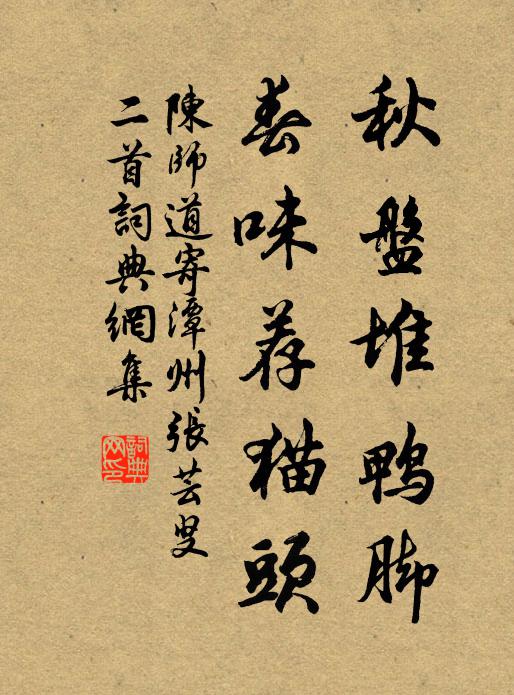 秋盤堆鴨脚
春味荐猫頭
陳師道寄潭州張芸叟
二首詞典網集
詞典网印